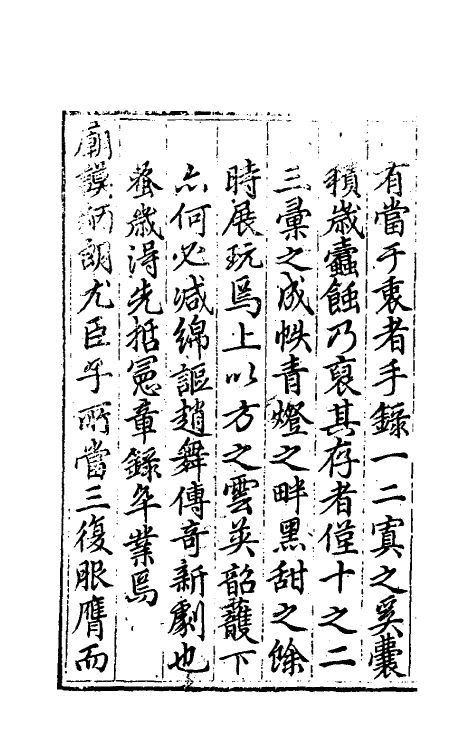 有當于衷者手錄一二寘之奚囊
積歲蠹蝕乃裒其存者僅十之二
三彙之成帙青燈之畔黑甜之餘
時展玩焉上以方之雲英韶䕶下
亦何必减綿謳趙舞傳奇新劇也
蚤歲得先拓憲章錄卒業焉
廟謨炳朗尤臣子所當三復服膺而